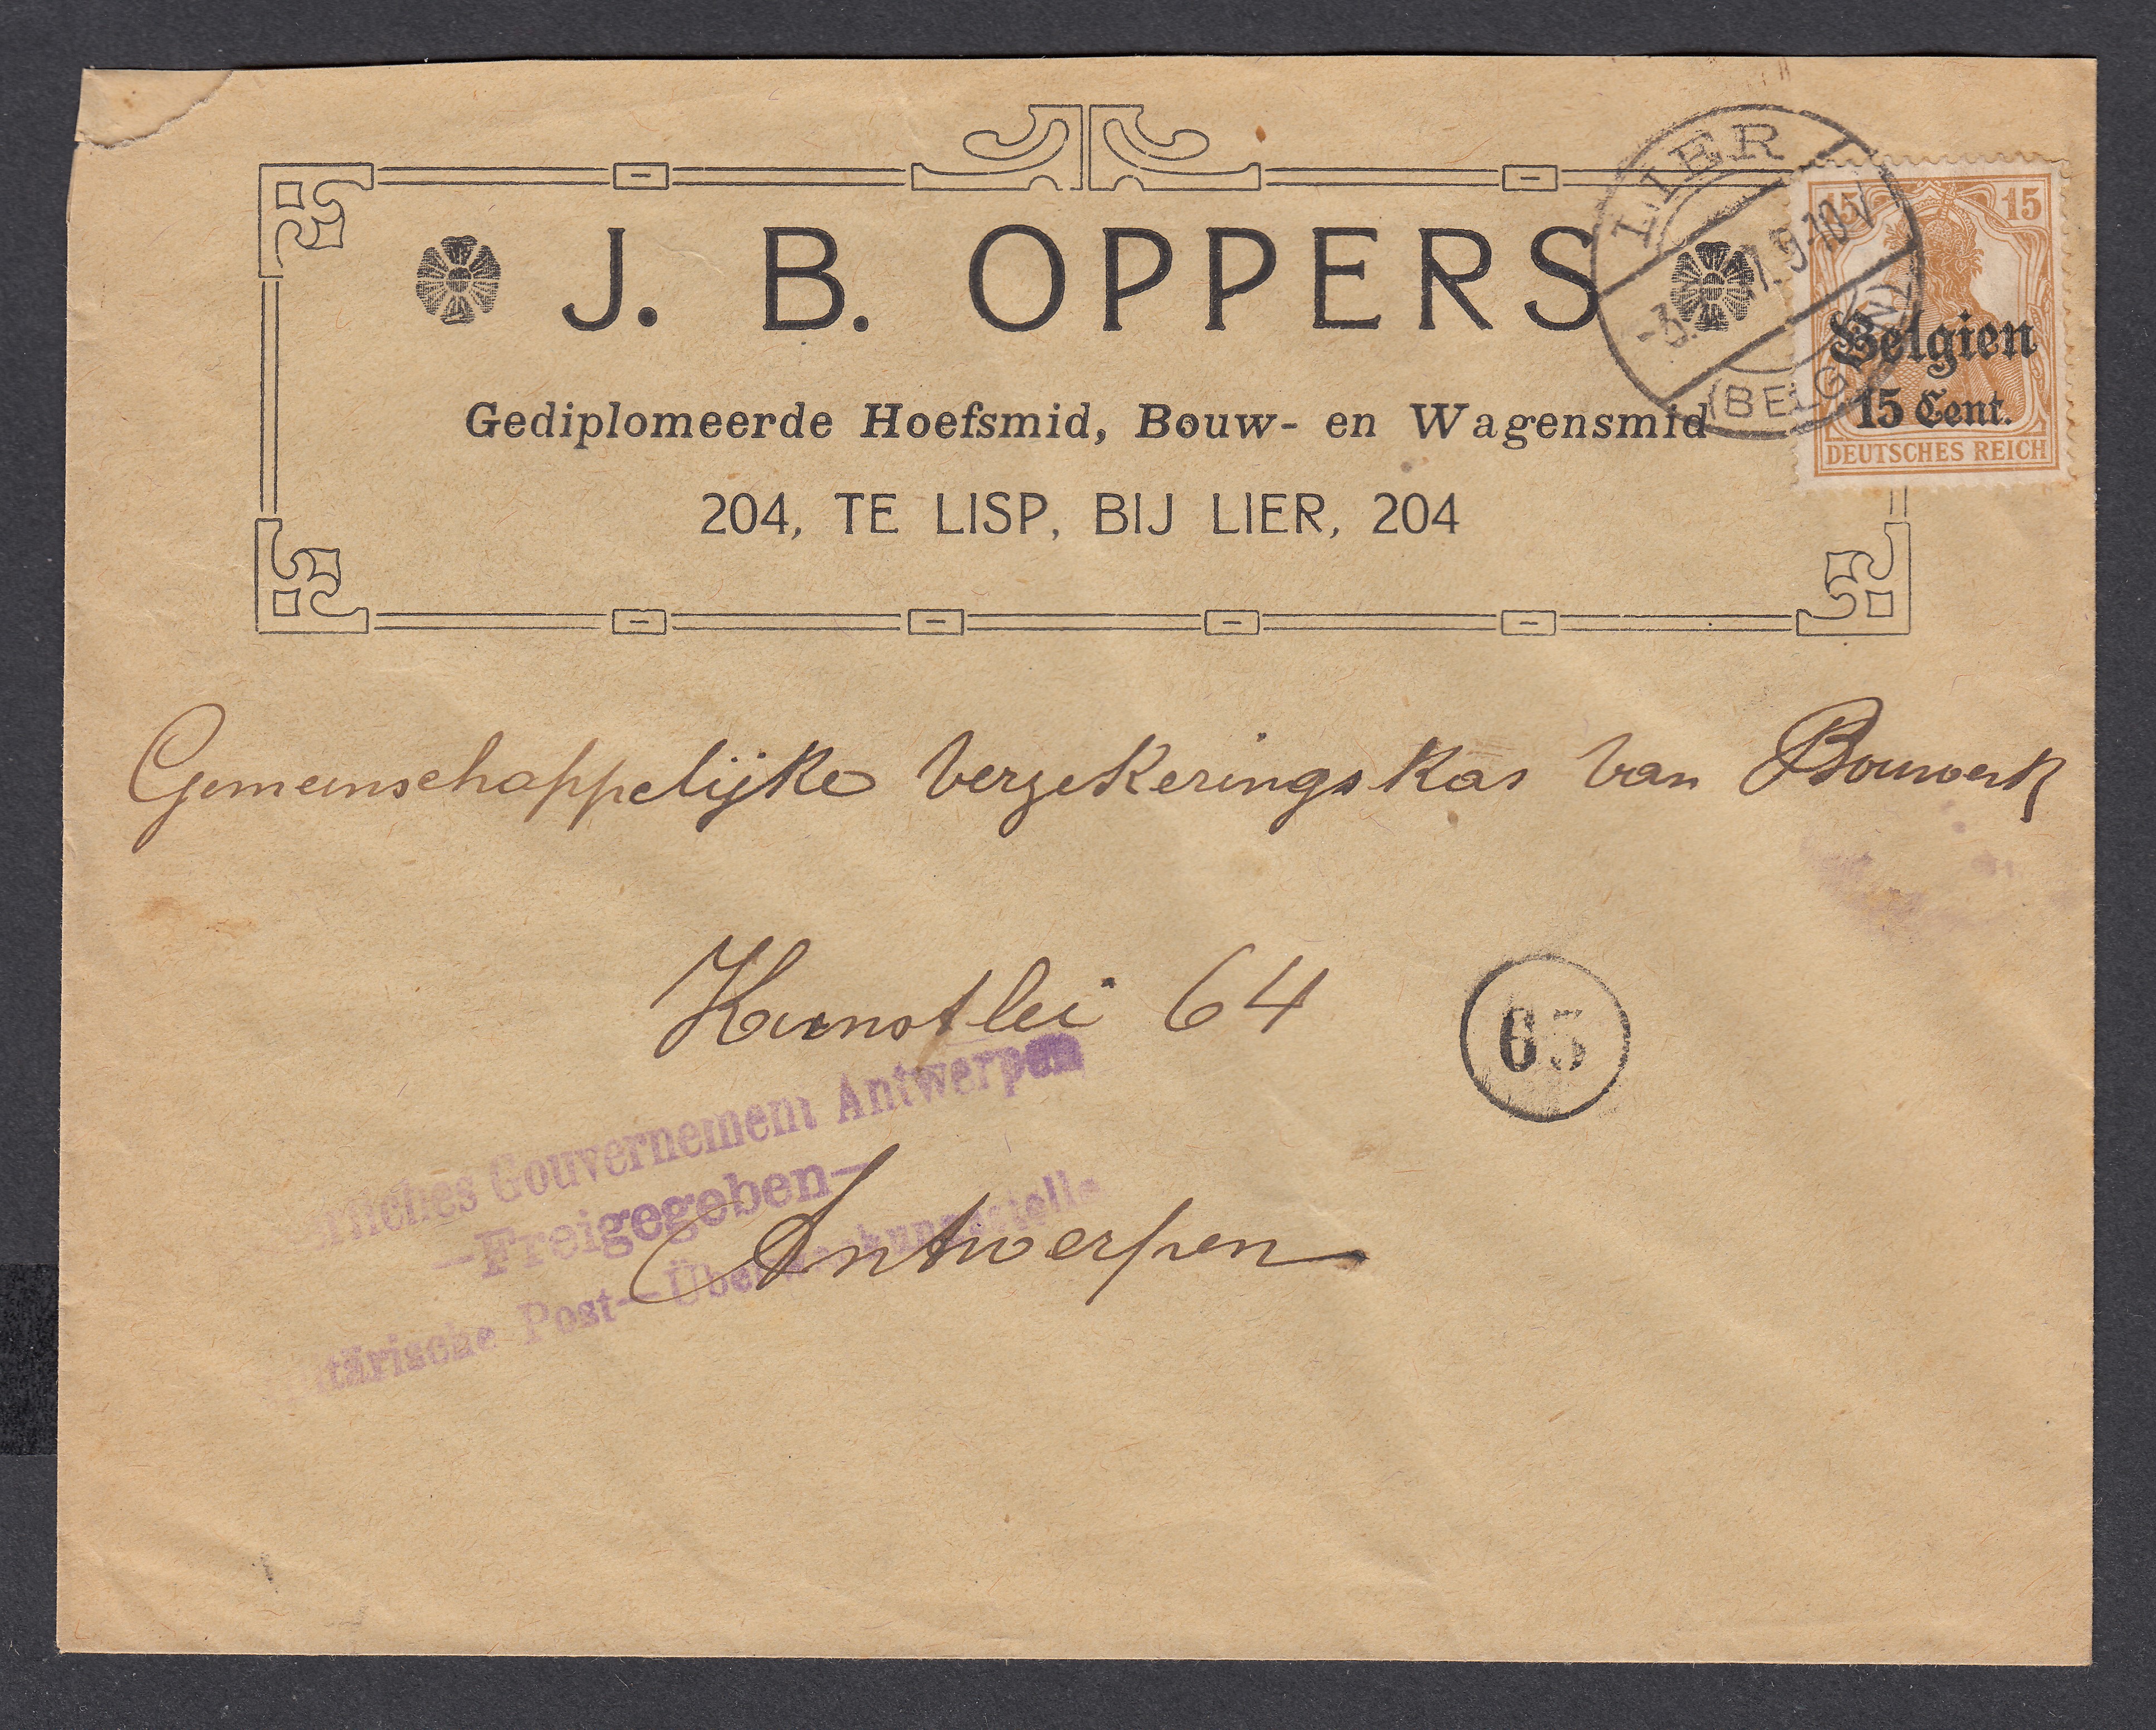 J. B. OPPERS
Gediplomeerde Hoefsmid, Bouw- en Wagensmid
204, TE LISP, BIJ LIER, 204
LIER
9-10V
(BELGIEN)
15 15
Belgien
15 Cent.
DEUTSCHES REICH
Gemeenschappelijke Verzekeringskas van Bouwerk
Kunstlei 64
65
Gouvernement Antwerpen
—Freigegeben—
Antwerpen
Post—Überwachungsstelle